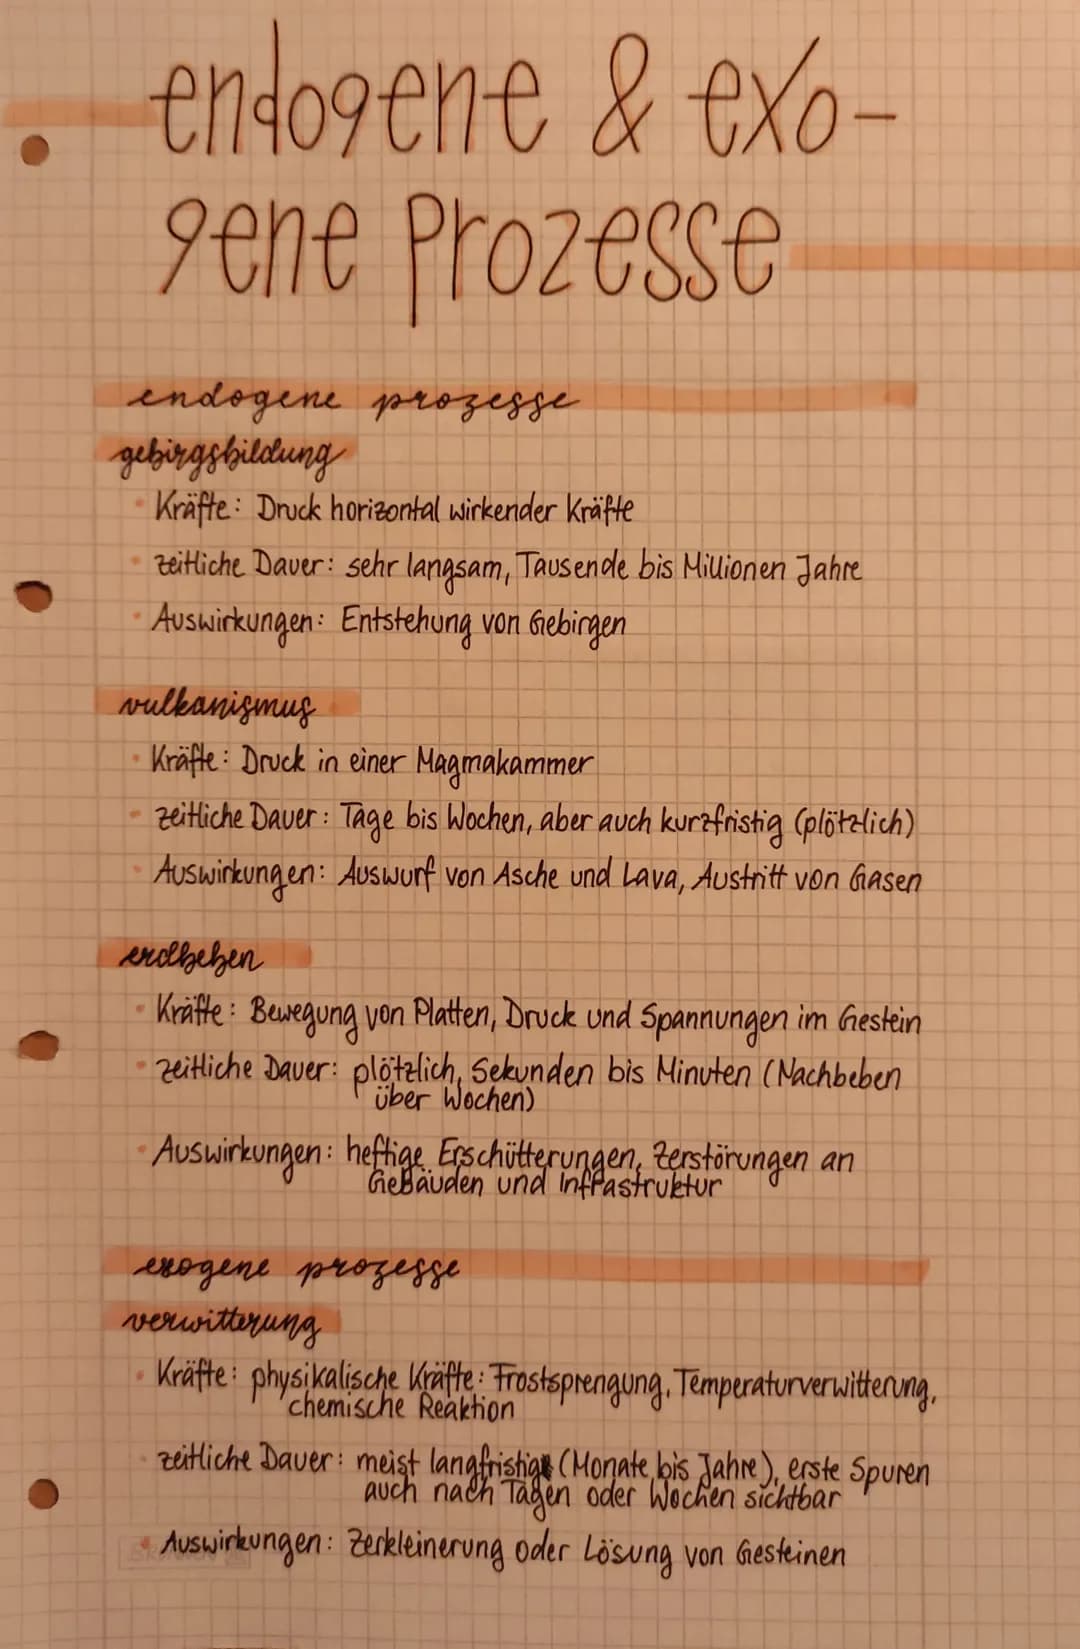 endogene & exo-
gene Prozesse
endogene prozesse
gebirgsbildung
• Kräfte: Druck horizontal wirkender Kräfte
• zeitliche Dauer: sehr langsam, Tausende bis Millionen Jahre
• Auswirkungen: Entstehung von Gebirgen
vulkanismus
• Kräfte: Druck in einer Magmakammer
• zeitliche Dauer: Tage bis Wochen, aber auch kurzfristig (plötzlich)
• Auswirkungen: Auswurf von Asche und Lava, Austritt von Gasen
erdbeben
• Kräfte: Bewegung von Platten, Druck und Spannungen im Gestein
• zeitliche Dauer: plötzlich, Sekunden bis Minuten (Nachbeben
über Wochen)
• Auswirkungen: heftige Erschütterungen, Zerstörungen an
Gebäuden und Infrastruktur
exogene prozesse
verwitterung
• Kräfte: physikalische Kräfte: Frostsprengung, Temperaturverwitterung,
chemische Reaktion
• zeitliche Dauer: meist langfristig (Monate bis Jahre), erste Spuren
auch nach Tagen oder Wochen sichtbar
• Auswirkungen: Zerkleinerung oder Lösung von Gesteinen